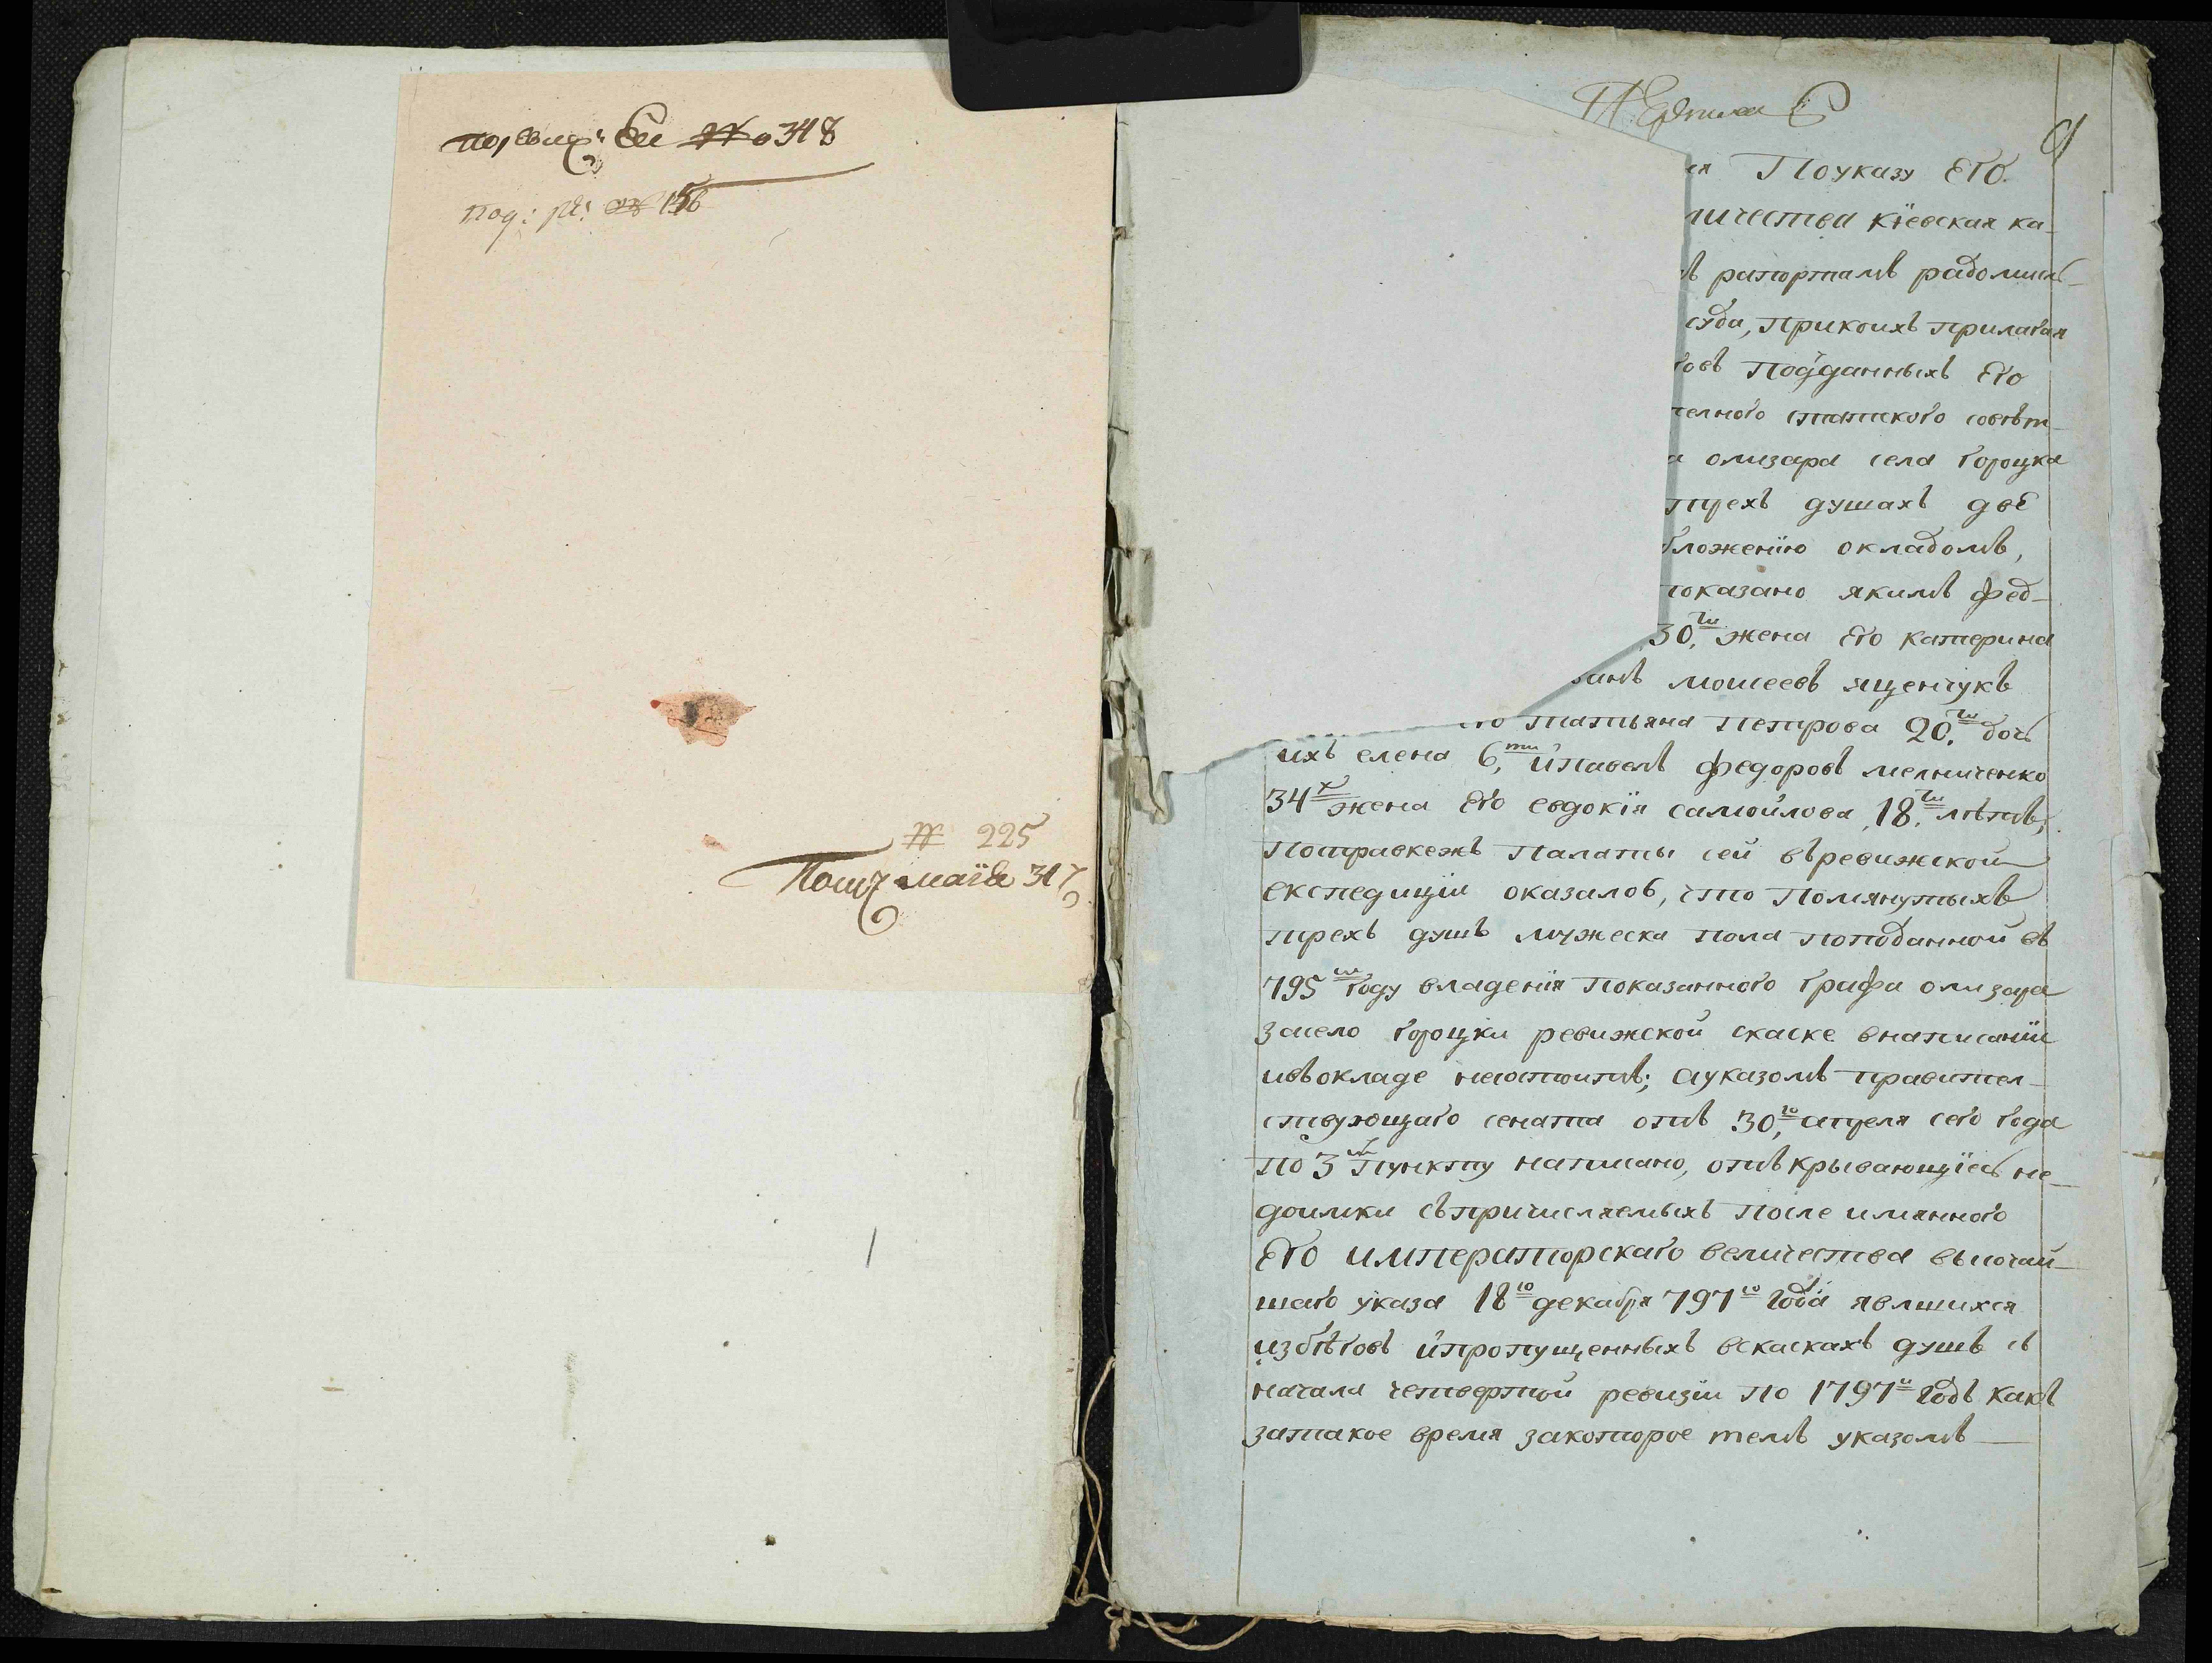 № 348
под: № 156
№ 225
маїя 31
9
ия По указу Его
личества кїевская ка-
въ рапортамъ радомысл-
суда, при коихъ прилагая
говъ подданныхъ Его
телного статского совѣт-
а олизара села городка
трехъ душахъ две
бложенїю окладомъ,
показано якимъ фед-
30,ти жена Его катерина
ванъ моисеевъ ященчукъ
его татьяна петрова 20,ти дочь
ихъ елена 6,ти и павелъ федоровъ мелниченко
34х жена Его евдокїя самойлова 18,ти лѣтъ,
по справкежъ палаты сей въ ревижской
експедицїи оказалось, что помянутыхъ
трехъ душъ мужеска пола по поданной въ
795м году владенїя показанного графа олизара
за село городки ревижской скаске в написанїи
и въ окладе не состоитъ; а указомъ правител-
ствующаго сената отъ 30,го апреля сего года
по 3му пункту написано, отъкрывающїесь не-
доимки съ причисляемыхъ после имянного
Его императорскаго величества высочай-
шаго указа 18го декабря 797го года явлшихся
из бѣговъ и пропущенныхъ в скаскахъ душъ съ
начала четвертой ревизїи по 1797й годъ какъ
за такое время за которое темъ указомъ